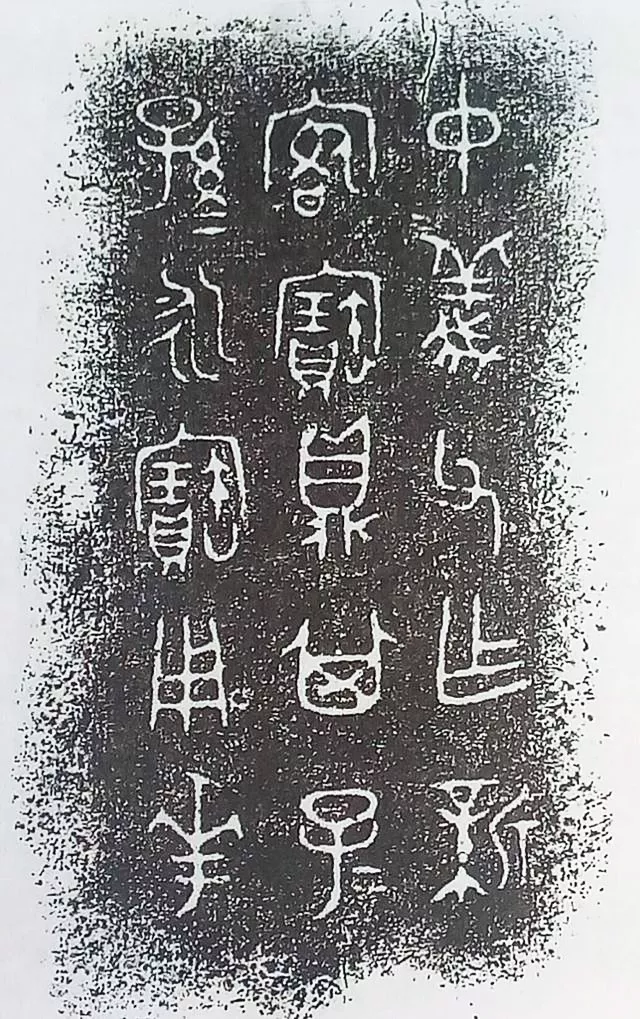 中義父乍新
客寶鼎其子＝
孫＝永寶用華